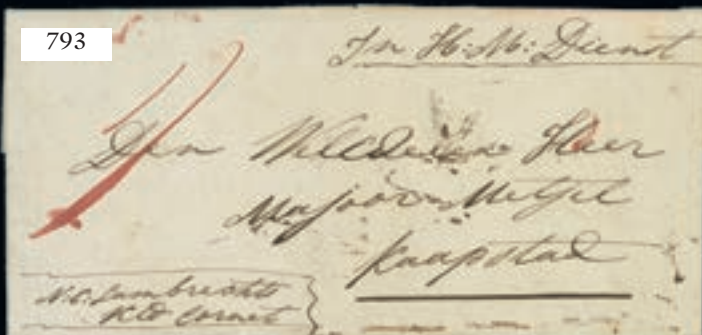 793
In H: M: Dienst
Den WelEdelen Heer
Majoor
Kaapstad
N.C. Lambrechts
Cornet